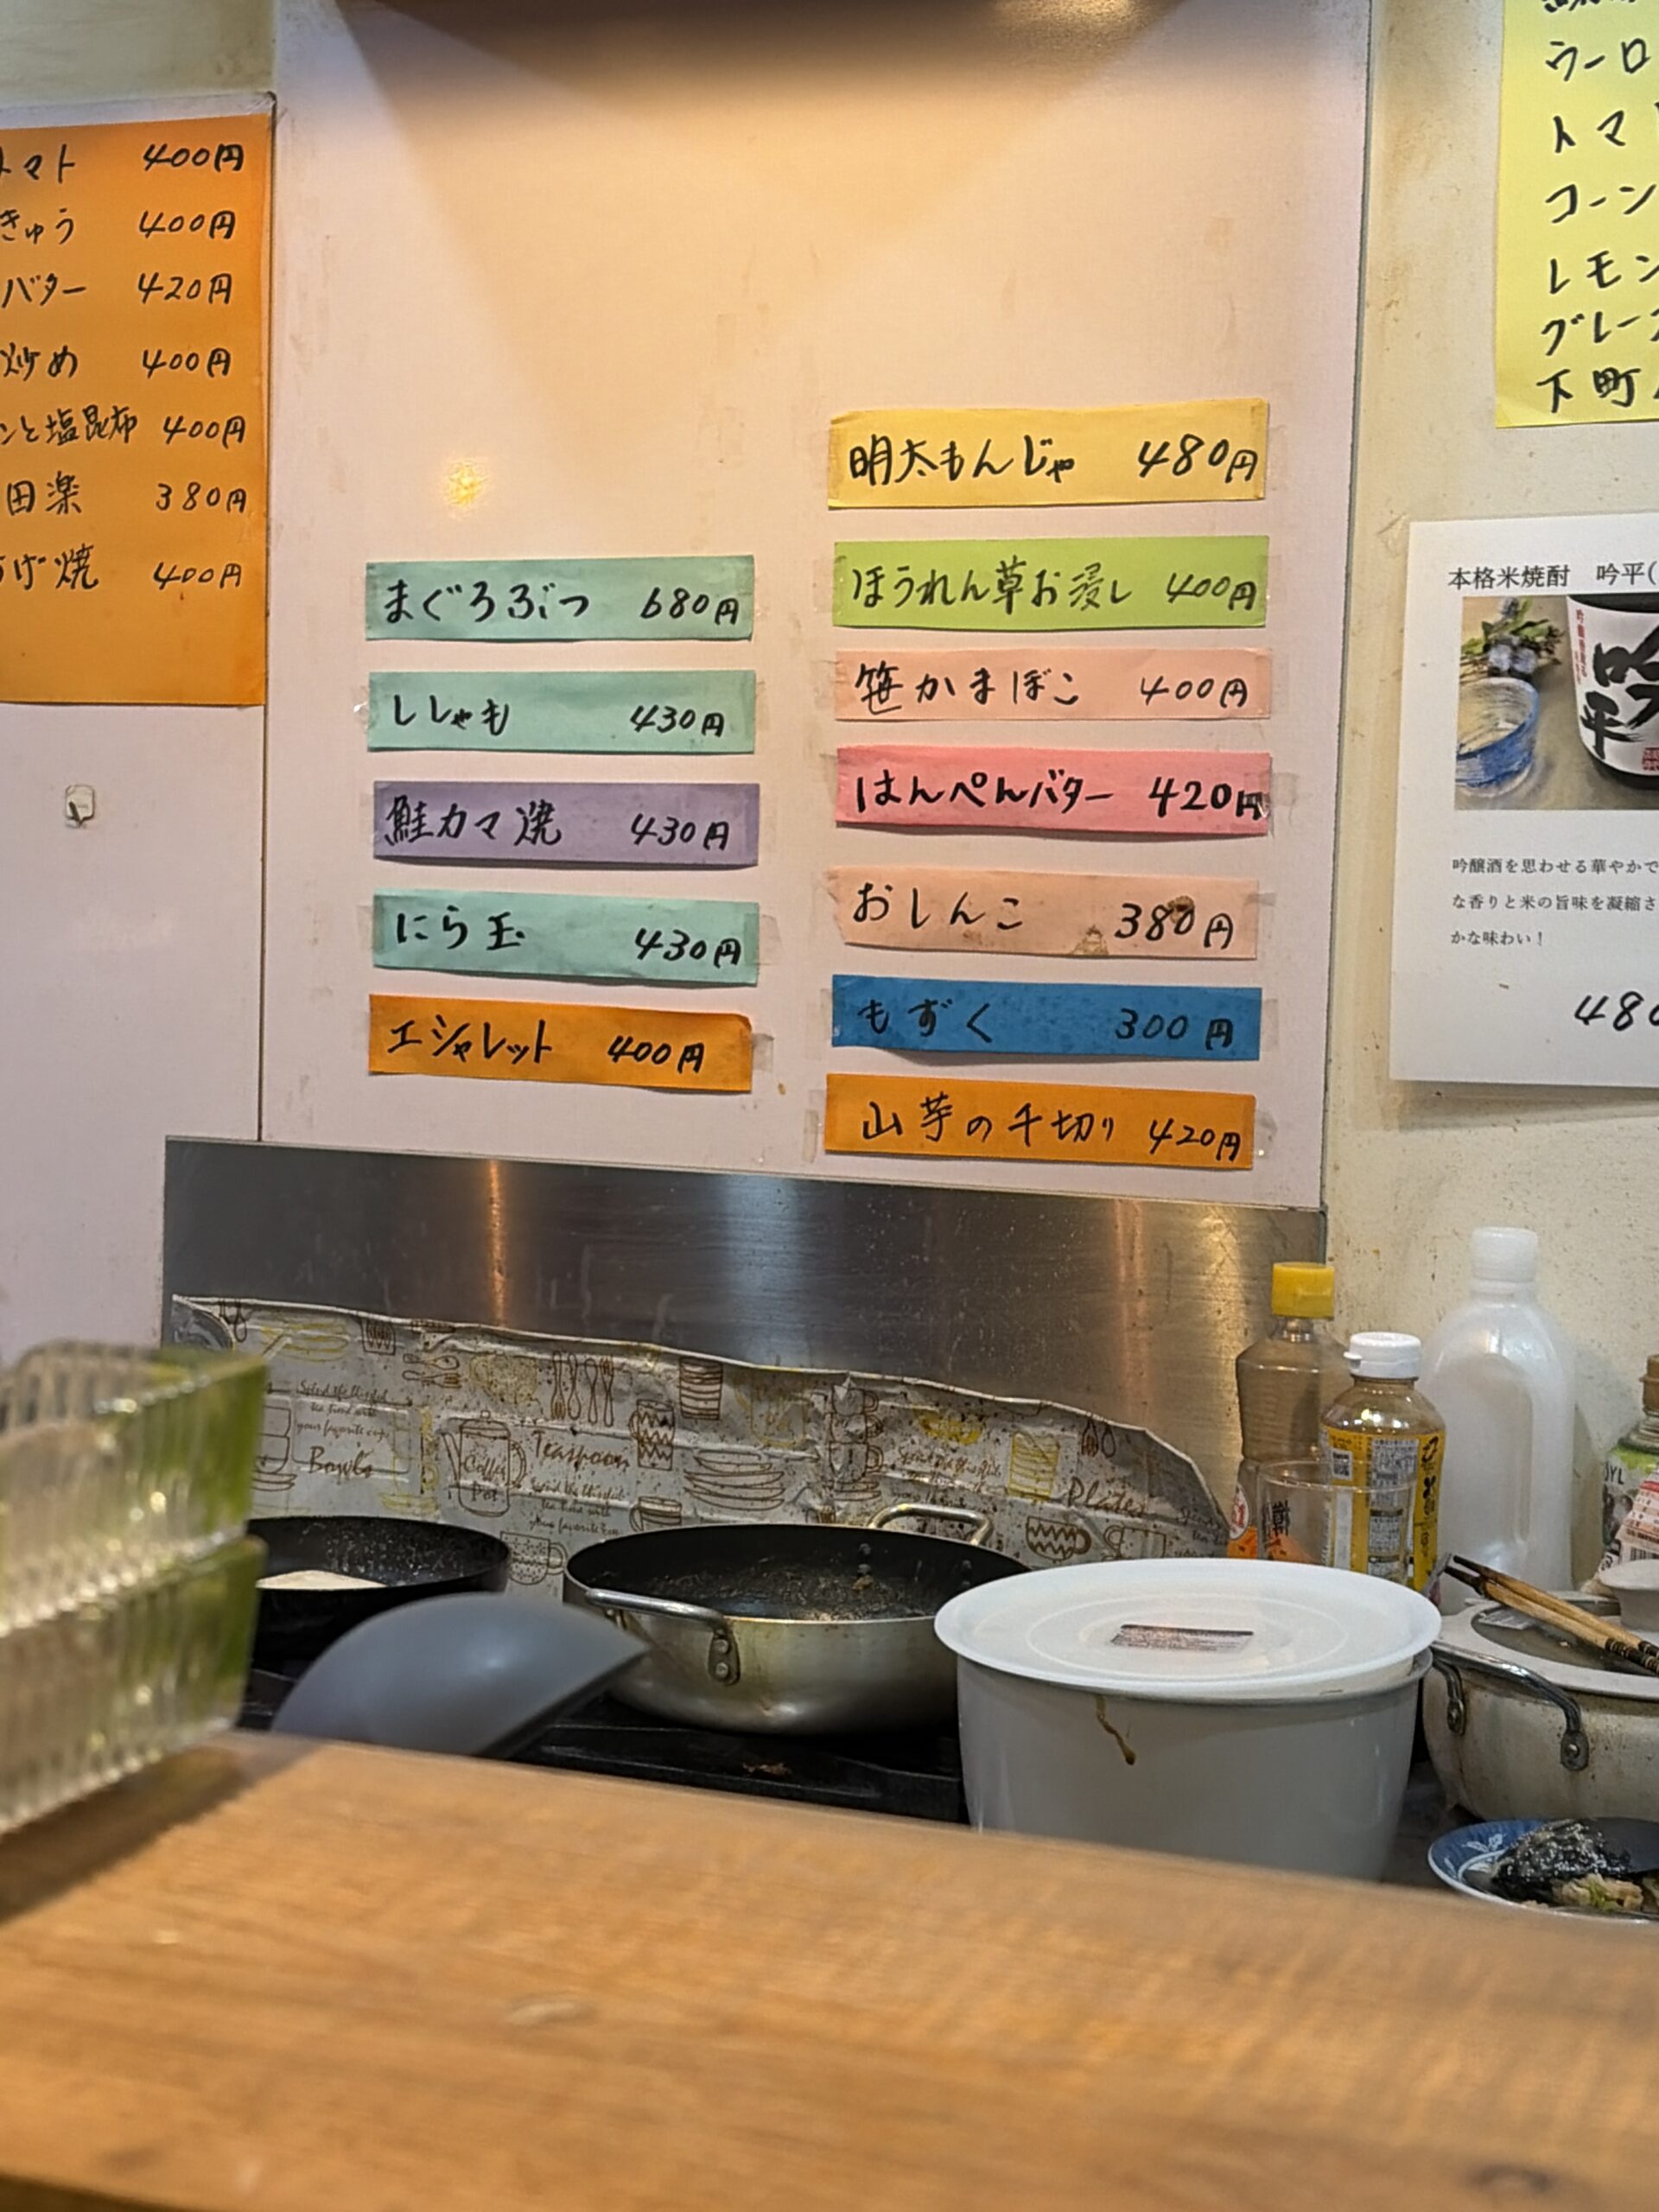 トマト 400円
きゅう 400円
バター 420円
炒め 400円
ンと塩昆布 400円
田楽 380円
げ焼 400円
まぐろぶつ 680円
ししゃも 430円
鮭カマ焼 430円
にら玉 430円
エシャレット 400円
明太もんじゃ 480円
ほうれん草お浸し 400円
笹かまぼこ 400円
はんぺんバター 420円
おしんこ 380円
もずく 300円
山芋の千切り 420円
ウーロ
トマ
コーン
レモン
グレー
下町
本格米焼酎 吟平(
吟平
吟醸酒を思わせる華やかで
な香りと米の旨味を凝縮さ
かな味わい!
480
Bowls
Coffee
Pot
Teaspoon
Plates